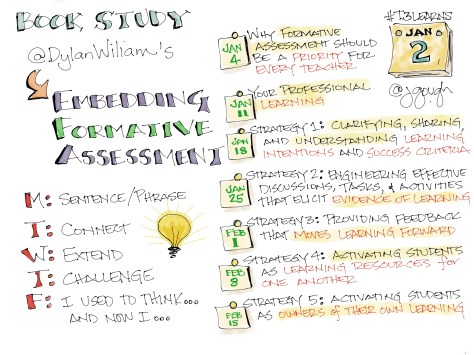 BOOK STUDY
@DylanWiliam's
EMBEDDING
FORMATIVE
ASSESSMENT
M: SENTENCE/PHRASE
T: CONNECT
W: EXTEND
T: CHALLENGE
F: I USED TO THINK...
AND NOW I...
#T3LEARNS
JAN
2
@jgough
JAN
4
WHY FORMATIVE
ASSESSMENT SHOULD
BE A PRIORITY FOR
EVERY TEACHER
JAN
11
YOUR PROFESSIONAL
LEARNING
JAN
18
STRATEGY 1: CLARIFYING, SHARING,
AND UNDERSTANDING LEARNING
INTENTIONS AND SUCCESS CRITERIA
JAN
25
STRATEGY 2: ENGINEERING EFFECTIVE
DISCUSSIONS, TASKS, & ACTIVITIES
THAT ELICIT EVIDENCE OF LEARNING
FEB
1
STRATEGY 3: PROVIDING FEEDBACK
THAT MOVES LEARNING FORWARD
FEB
8
STRATEGY 4: ACTIVATING STUDENTS
AS LEARNING RESOURCES FOR
ONE ANOTHER
FEB
15
STRATEGY 5: ACTIVATING STUDENTS
AS OWNERS OF THEIR OWN LEARNING